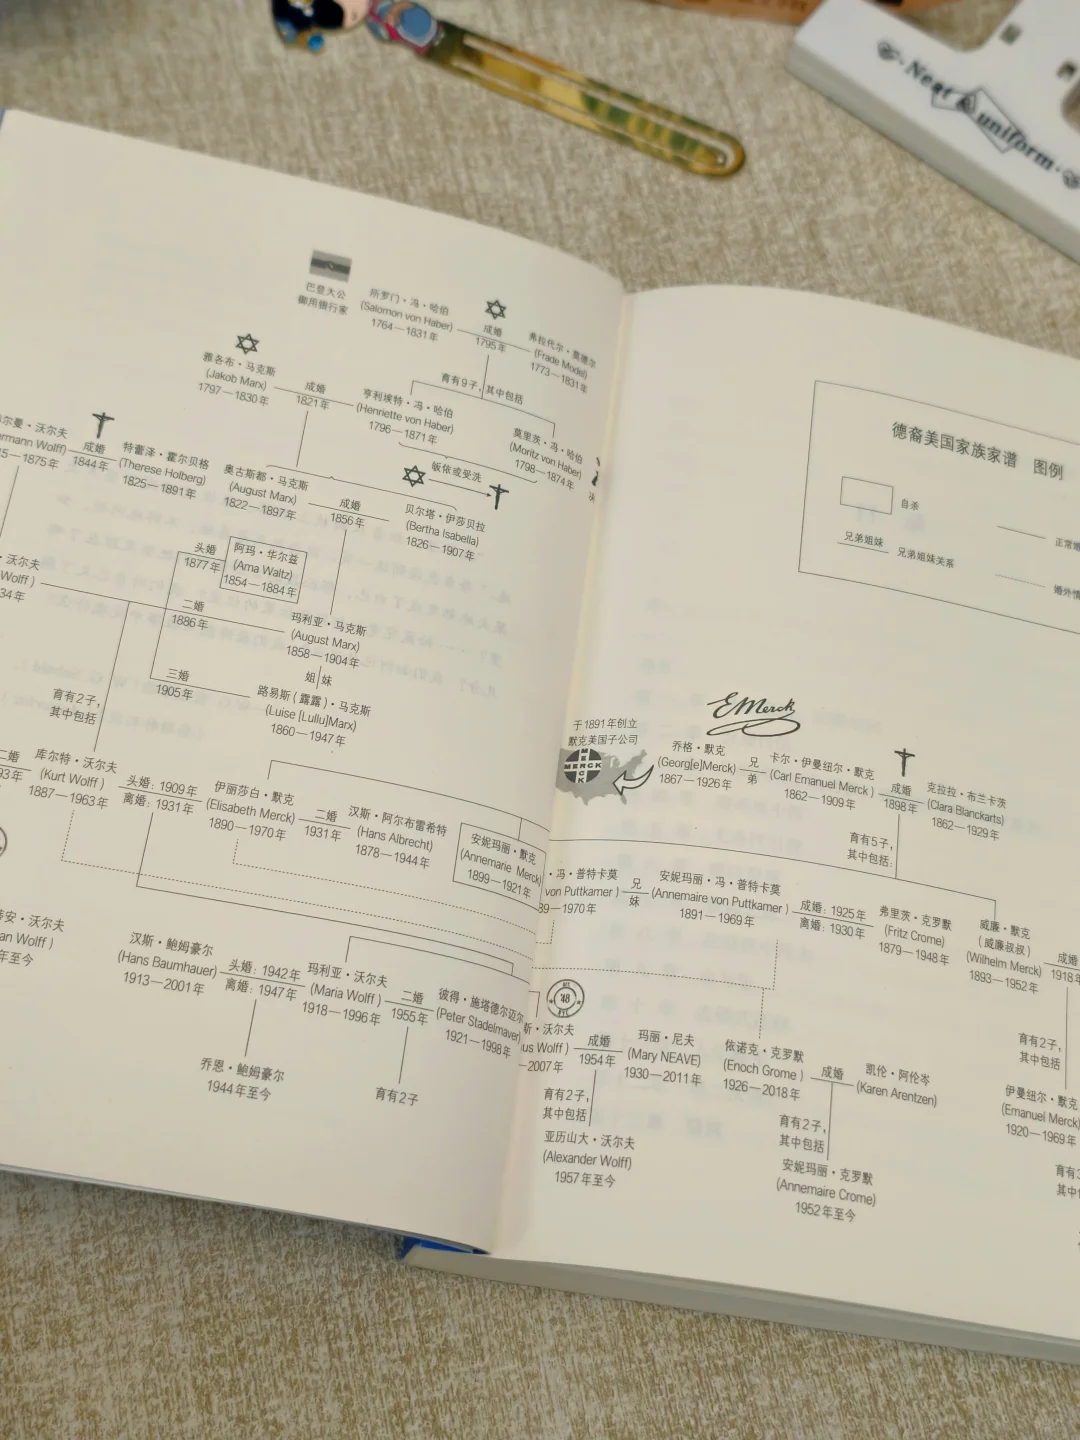 Neat & uniform
巴登大公
御用银行家
所罗门·冯·哈伯
(Salomon von Haber)
1764—1831年
成婚
1795年
弗拉代尔·莫德尔
(Frade Model)
1773—1831年
育有9子，其中包括
雅各布·马克斯
(Jakob Marx)
1797—1830年
成婚
1821年
亨利埃特·冯·哈伯
(Henriette von Haber)
1796—1871年
莫里茨·冯·哈伯
(Moritz von Haber)
1798—1874年
尔曼·沃尔夫
ermann Wolff)
5—1875年
成婚
1844年
特蕾泽·霍尔贝格
(Therese Holberg)
1825—1891年
奥古斯都·马克斯
(August Marx)
1822—1897年
成婚
1856年
皈依或受洗
贝尔塔·伊莎贝拉
(Bertha Isabella)
1826—1907年
·沃尔夫
Wolff)
34年
头婚
1877年
阿玛·华尔兹
(Ama Waltz)
1854—1884年
二婚
1886年
玛利亚·马克斯
(August Marx)
1858—1904年
姐妹
三婚
1905年
路易斯(露露)·马克斯
(Luise [Lullu]Marx)
1860—1947年
育有2子，
其中包括
二婚
93年
库尔特·沃尔夫
(Kurt Wolff)
1887—1963年
头婚：1909年
离婚：1931年
伊丽莎白·默克
(Elisabeth Merck)
1890—1970年
二婚
1931年
汉斯·阿尔布雷希特
(Hans Albrecht)
1878—1944年
安妮玛丽·默克
(Annemarie Merck)
1899—1921年
安·沃尔夫
an Wolff)
年至今
汉斯·鲍姆豪尔
(Hans Baumhauer)
1913—2001年
头婚：1942年
离婚：1947年
玛利亚·沃尔夫
(Maria Wolff)
1918—1996年
二婚
1955年
彼得·施塔德尔迈尔
(Peter Stadelmayer)
1921—1998年
乔恩·鲍姆豪尔
1944年至今
育有2子
德裔美国家族家谱 图例
自杀
正常婚
兄弟姐妹
兄弟姐妹关系
婚外情
E Merck
于1891年创立
默克美国子公司
MERCK
MERCK
乔格·默克
(Georg[e]Merck)
1867—1926年
兄弟
卡尔·伊曼纽尔·默克
(Carl Emanuel Merck)
1862—1909年
成婚
1898年
克拉拉·布兰卡茨
(Clara Blanckarts)
1862—1929年
育有5子，
其中包括：
·冯·普特卡莫
von Puttkamer)
89—1970年
兄妹
安妮玛丽·冯·普特卡莫
(Annemaire von Puttkamer)
1891—1969年
成婚：1925年
离婚：1930年
弗里茨·克罗默
(Fritz Crome)
1879—1948年
威廉·默克
(威廉叔叔)
(Wilhelm Merck)
1893—1952年
成婚
1918年
'48
斯·沃尔夫
us Wolff)
—2007年
成婚
1954年
玛丽·尼夫
(Mary NEAVE)
1930—2011年
依诺克·克罗默
(Enoch Grome)
1926—2018年
成婚
凯伦·阿伦岑
(Karen Arentzen)
育有2子，
其中包括
伊曼纽尔·默克
(Emanuel Merck)
1920—1969年
育有2子，
其中包括
亚历山大·沃尔夫
(Alexander Wolff)
1957年至今
育有2子，
其中包括
安妮玛丽·克罗默
(Annemaire Crome)
1952年至今